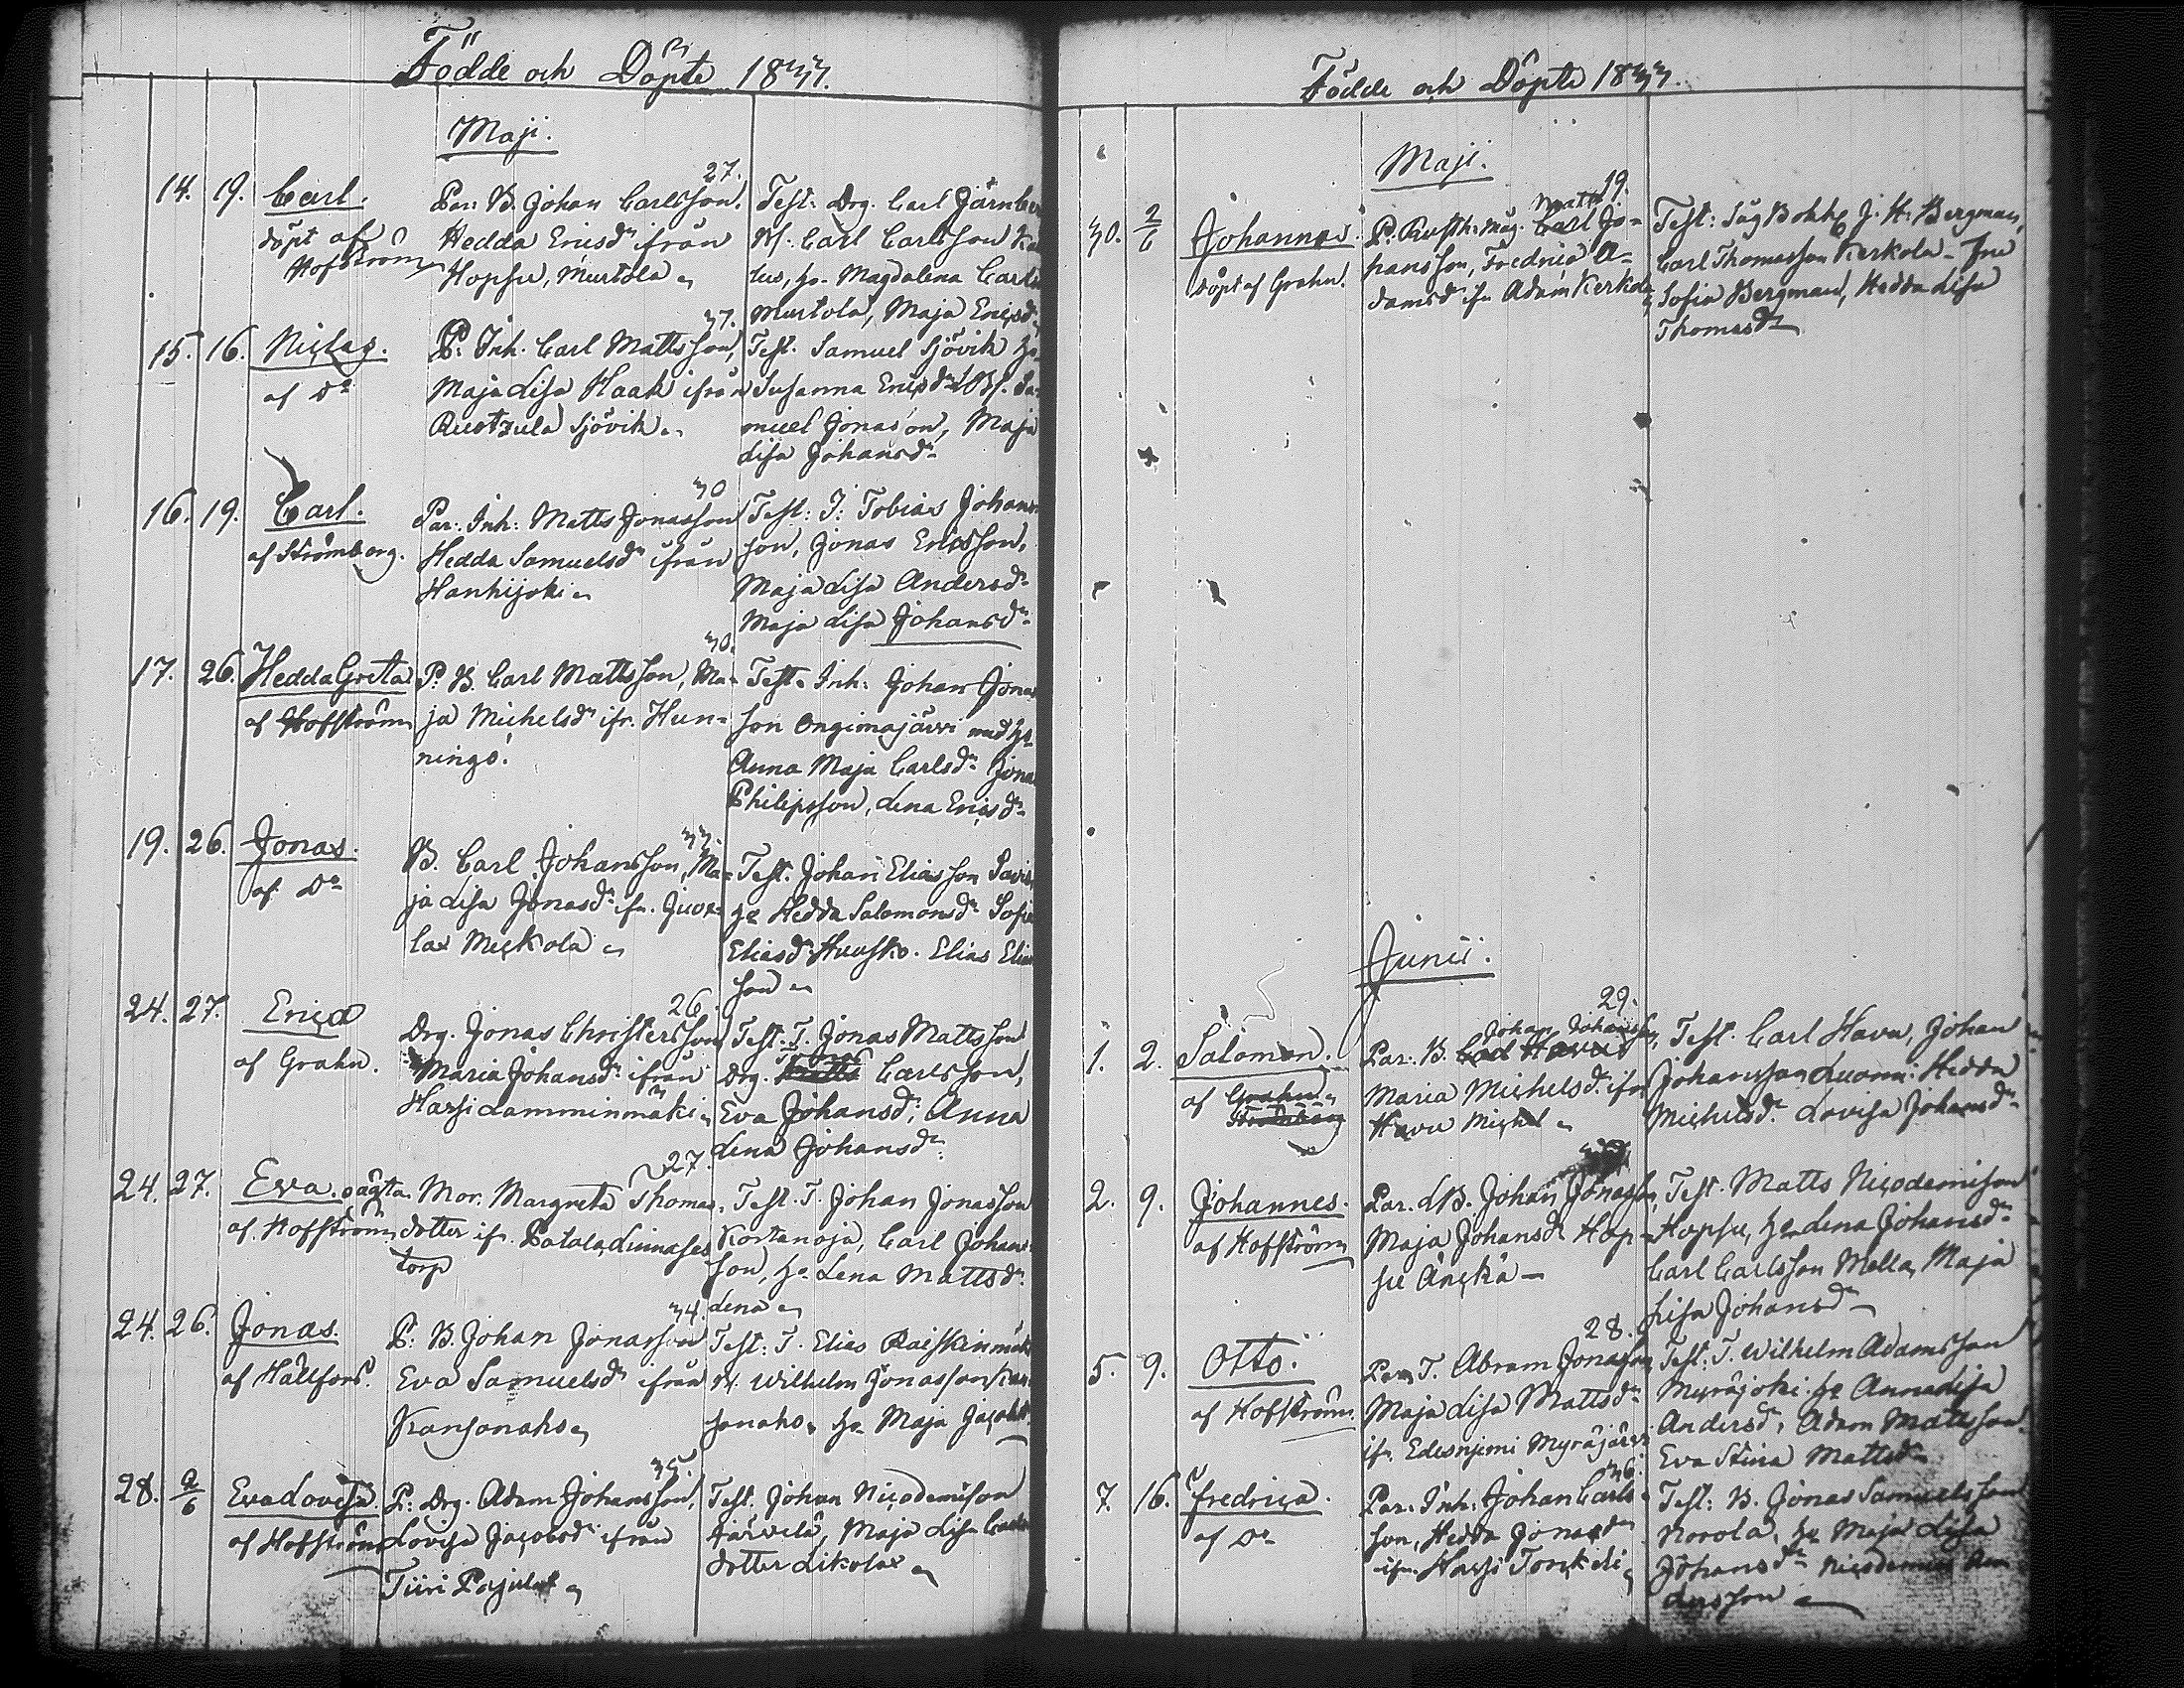 Födde och Döpte 1833.
Maji.
14. 19. Carl.
döpt af
Hofström
27.
Par: B. Johan Carlsson.
Hedda Ericsdr ifrån
Hopsu, Murtola
Test: Drg. Carl Järnber
Bs. Carl Carlsson
lus, ho. Magdalena Carls
Murtola, Maja Ericsdr
15. 16. Niclas.
af Do
37.
P: Inh. Carl Mattsson,
Maja Lisa Haak ifrån
Sjövik
Test. Samuel Sjövik ho
Susanna Ericsdr Bs. Sa-
muel Jonasson, Maja
Lisa Johansdr
16. 19. Carl.
af Strömborg.
30
Par: Inh: Matts Jonasson
Hedda Samuelsdr ifrån
Hanhijoki
Test: J: Tobias Johans
son, Jonas Ericsson,
Maja Lisa Andersdr
Maja Lisa Johansdr
17. 26. Hedda Greta
af Hofström
30.
P. B. Carl Mattsson, Ma-
ja Michelsdr ifr. Hun-
ningo.
Test. Inh: Johan Jonas
son Ongimajärvi med ho
Anna Maja Carlsdr Jonas
Philipsson, Lena Ericsdr
19. 26. Jonas.
af Do
33.
B. Carl Johansson, Ma-
ja Lisa Jonasdr ifr.
lax Mickola
Test. Johan Eliasson
ho Hedda Salomonsdr Sofia
Eliasdr Huusko. Elias Elias
son
24. 27. Erica
af Grahn.
26.
Drg. Jonas Christersson
Maria Johansdr ifrån
Harsi Lamminmäki
Test. T. Jonas Mattsson
Drg. Carlsson,
Eva Johansdr, Anna
Lena Johansdr
24. 27. Eva. oägta
af Hofström
27.
Mor. Margreta Thomas-
dotter ifr. Patala
torp
Test. T. Johan Jonasson
Kortenoja, Carl Johans
son, ho Lena Mattsdr
Lena
24. 26. Jonas.
af Hällfors.
34.
P: B. Johan Jonasson
Eva Samuelsdr ifrån
Kansonaho
Test: T. Elias Raiskinmäki
Wilhelm Jonasson Kan
sonaho, ho. Maja Jacobsdr
28. 2/6 Eva Lovisa.
af Hofström
35.
P: Drg. Adam Johansson,
Lovisa Jacobsdr ifrån
Tiiri
Test. Johan Nicodemusson
Järvelä, Maja Lisa Carls
dotter Likolax
Födde och Döpte 1833.
Maji.
30. 2/6 Johannes.
döpt af Grahn.
19.
Matts
P: Rusth. Måg. Carl Jo-
hansson, Fredrica A-
damsdr ifr Adam Kerkola
Test: Såg Bokh J. H. Bergman,
Carl Thomasson Kerkola - Fru
Sofia Bergman, Hedda Lisa
Thomasdr
Junii.
1. 2. Salomon.
af Grahn
29.
Johan Johansson,
Par: B. Carl Havu
Maria Michelsdr ifr
Havu Michel
Test. Carl Havu, Johan
Johansson Luomi: Hedda
Michelsdr Lovisa Johansdr
2. 9. Johannes.
af Hofström
Par. B. Johan Jonasson,
Maja Johansdr Hop-
su Änckä
Test. Matts Nicodemison
Hopsu, ho Lena Johansdr
Carl Carlsson Mella, Maja
Lisa Johansdr
5. 9. Otto.
af Hofström.
28.
Par T. Abram Jonasson
Maja Lisa Mattsdr
ifr. Edesnjemi Myräjärvi
Test: T. Wilhelm Adamsson
Myräjoki. ho Anna Lisa
Andersdr, Adam Mattsson.
Eva Stina Mattsdr
7. 16. Fredrica.
af Do
36.
Par: Inh: Johan Carls-
son, Hedda Jonasdr
ifr. Harsi Tonckeli
Test: B. Jonas Samuelsson
Norola, ho Maja Lisa
Johansdr Nicodemus An
dersson